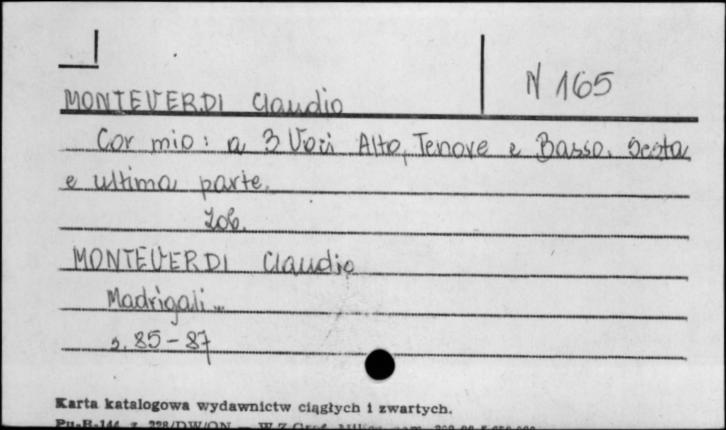 N 165
MONTEVERDI Claudio
Cor mio: a 3 Voci Alto, Tenore e Basso. Sesta
e ultima parte.
Zob.
MONTEVERDI Claudio
Madrigali...
s. 85-87
Karta katalogowa wydawnictw ciągłych i zwartych.
Pu-B-144 z. 228/DW/ON — W.Z.Graf.